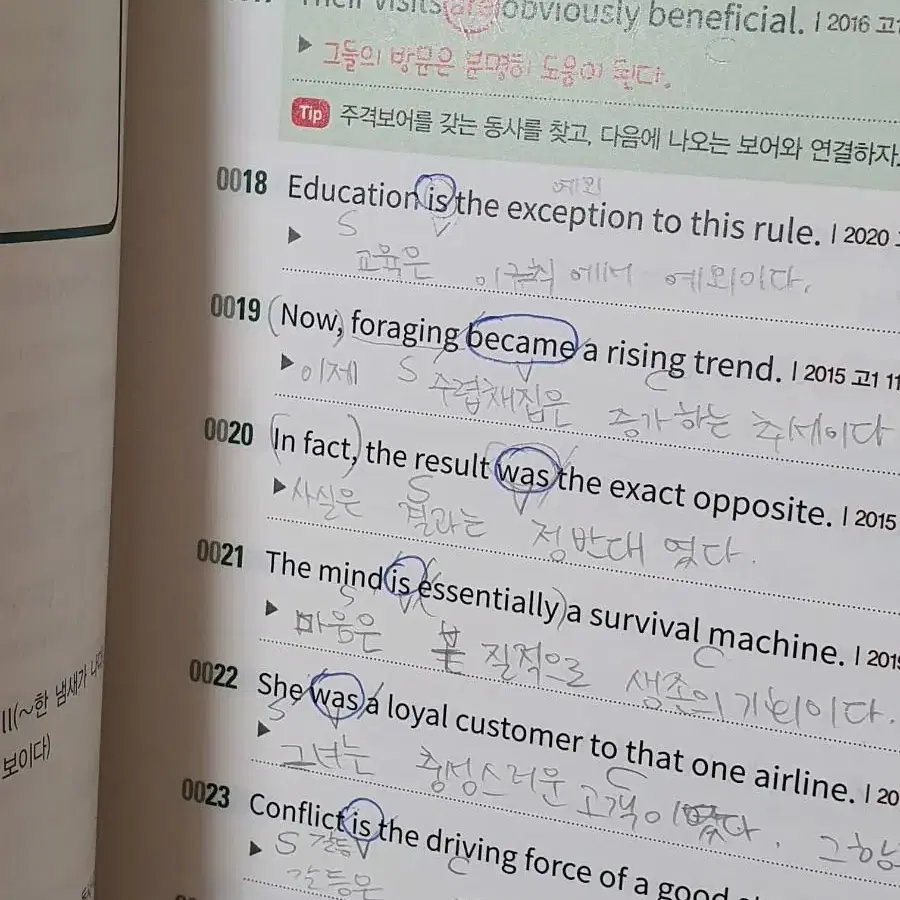 Their visits are obviously beneficial. | 2016 고1
▶ 그들의 방문은 분명히 도움이 된다.
Tip 주격보어를 갖는 동사를 찾고, 다음에 나오는 보어와 연결하자.
예외
0018 Education is the exception to this rule. | 2020
S V
▶ 교육은 이 규칙에서 예외이다.
0019 (Now,) foraging became a rising trend. | 2015 고1 11
S V C
▶ 이제 수렵채집은 증가하는 추세이다
0020 (In fact,) the result was the exact opposite. | 2015
S V
▶ 사실은 결과는 정반대 였다.
0021 The mind is (essentially) a survival machine. | 201
S V C
▶ 마음은 본질적으로 생존의 기회이다.
0022 She was a loyal customer to that one airline. | 20
S C
▶ 그녀는 충성스러운 고객이였다. 그항
0023 Conflict is the driving force of a good
S 갈등 V C
▶ 갈등은
ll(~한 냄새가 나
보이다)